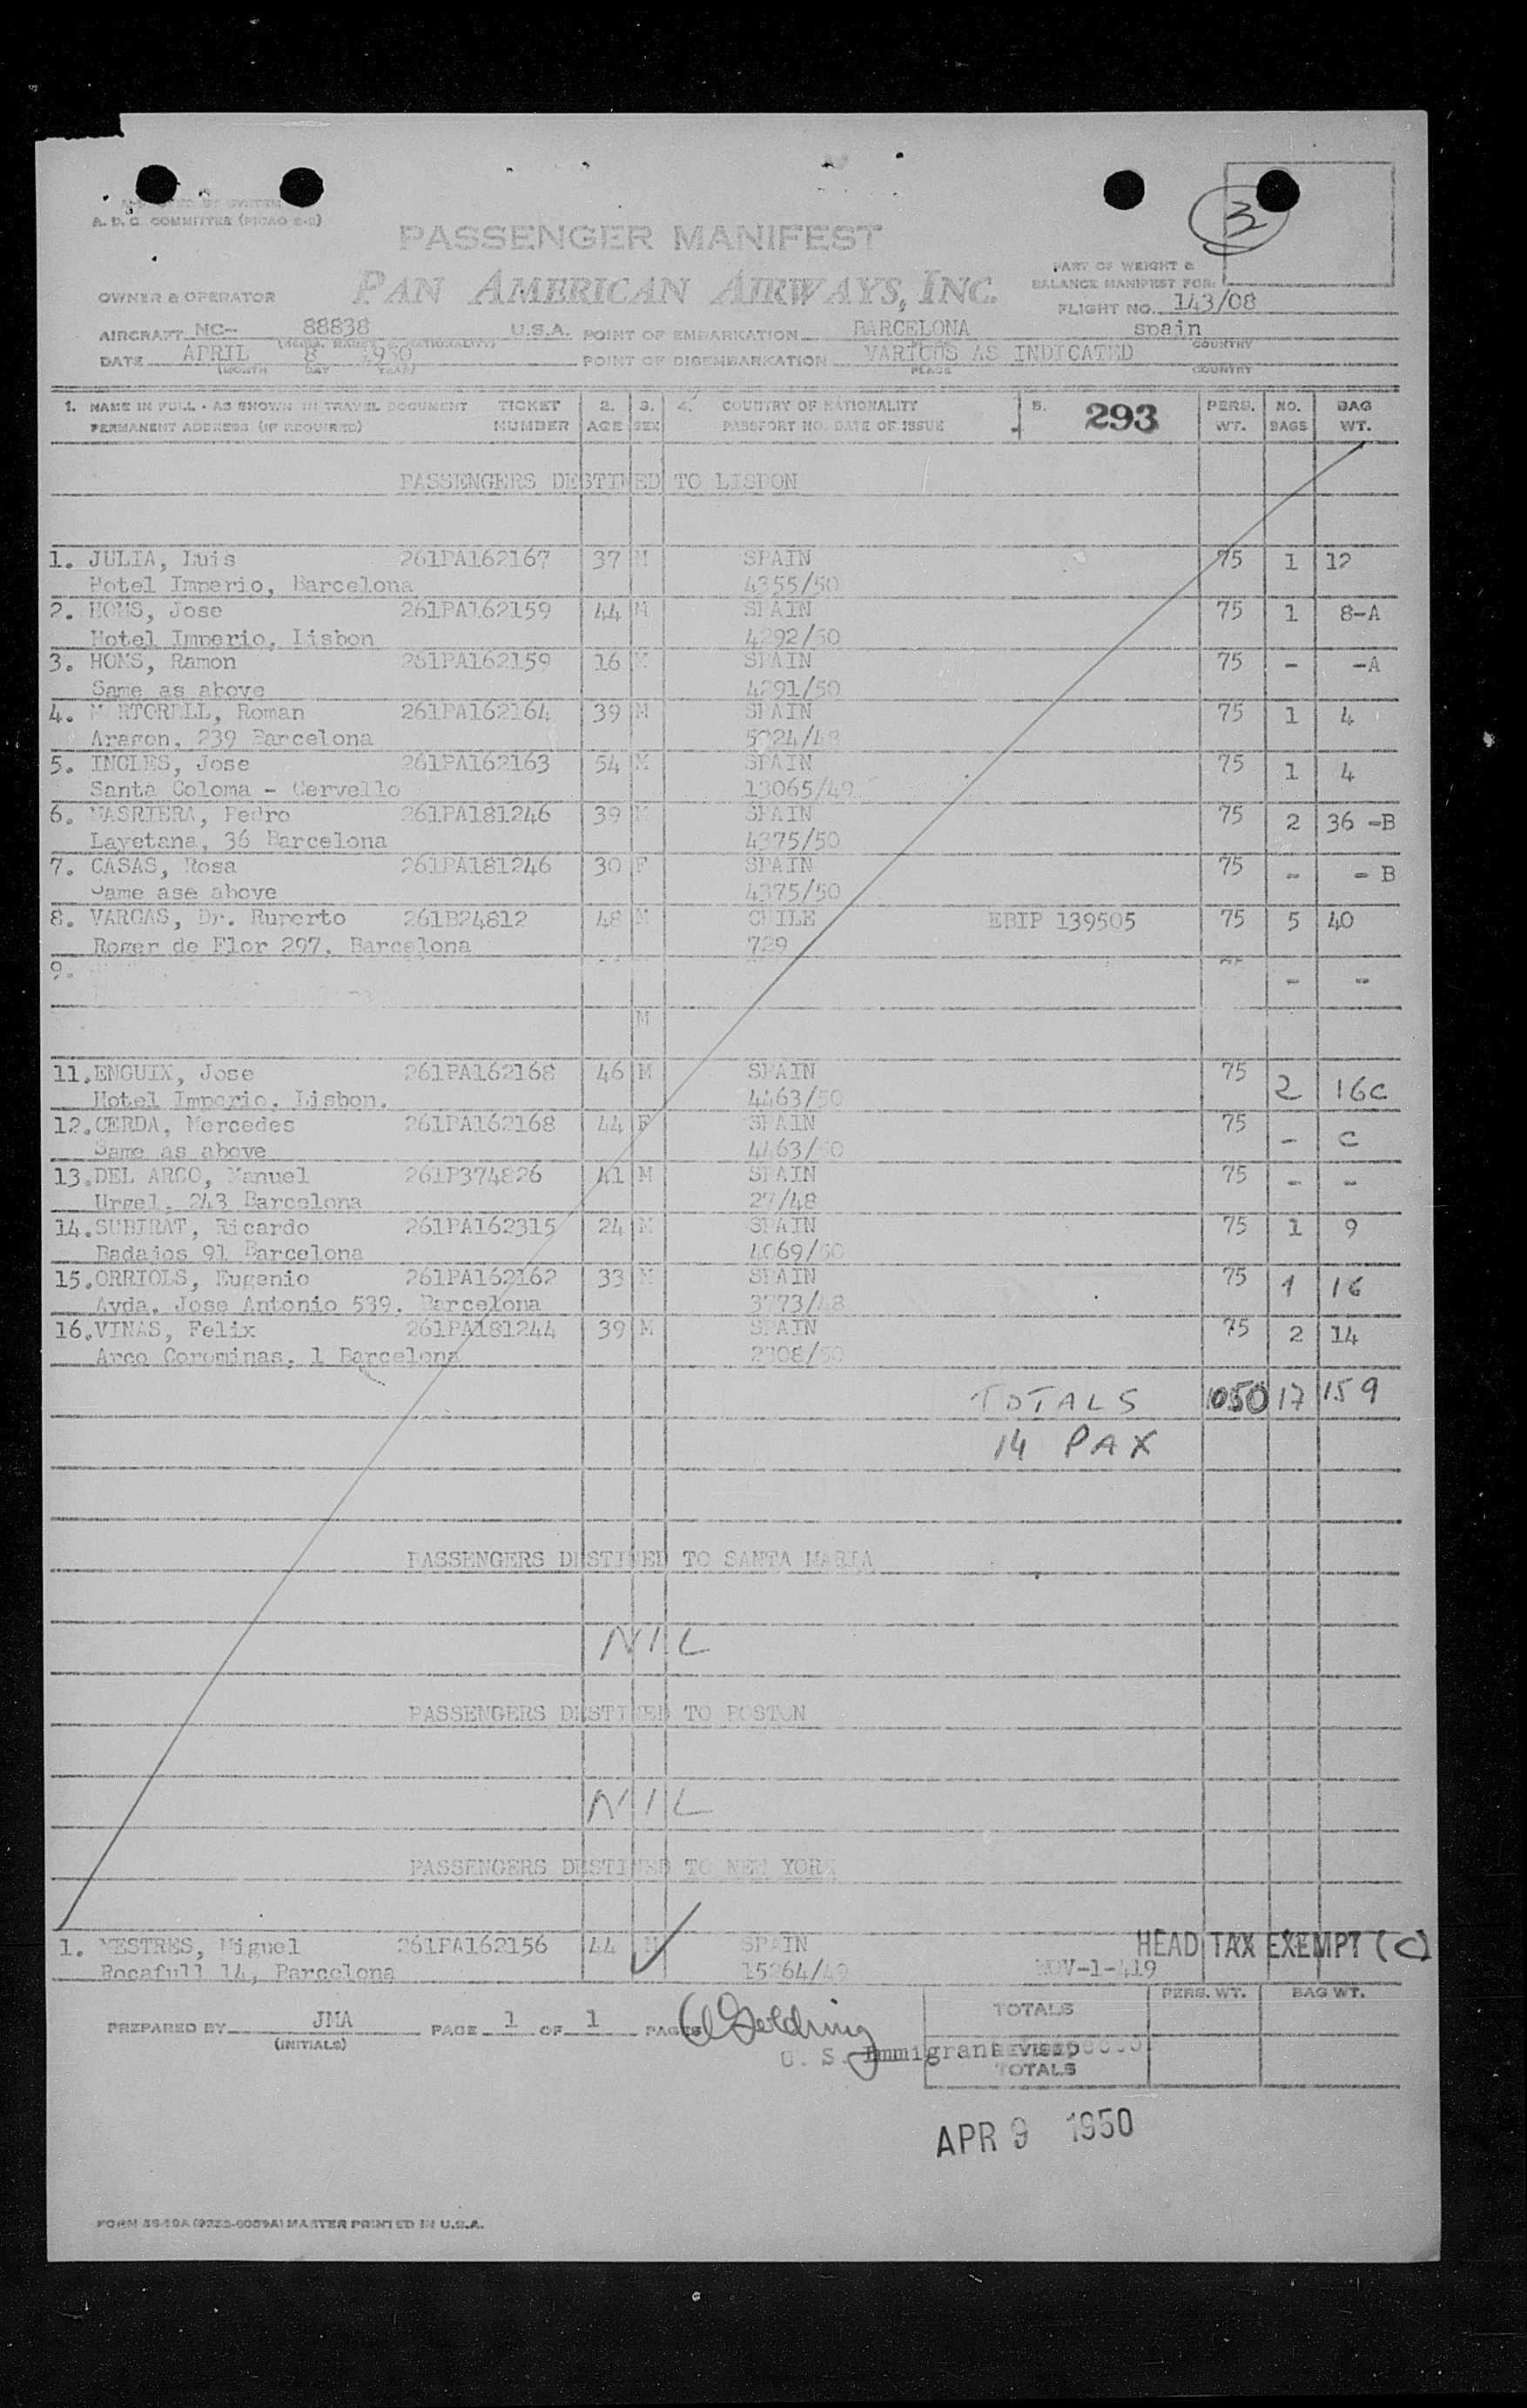 A. D. C. COMMITTEE (PICAO 2-2)
3
PASSENGER MANIFEST
PAN AMERICAN AIRWAYS, INC.
PART OF WEIGHT &
BALANCE MANIFEST FOR:
OWNER & OPERATOR
FLIGHT NO. 143/08
AIRCRAFT NC- 88838 U.S.A. POINT OF EMBARKATION BARCELONA spain
COUNTRY
DATE APRIL 8 1950 POINT OF DISEMBARKATION VARIOUS AS INDICATED
(MONTH DAY YEAR) PLACE COUNTRY
1. NAME IN FULL - AS SHOWN IN TRAVEL DOCUMENT TICKET 2. 3. 4. COUNTRY OF NATIONALITY 5. 293 PERS. NO. BAG
PERMANENT ADDRESS (IF REQUIRED) NUMBER AGE SEX PASSPORT NO. DATE OF ISSUE WT. BAGS WT.
PASSENGERS DESTINED TO LISBON
1. JULIA, Luis 261PA162167 37 M SPAIN 75 1 12
Hotel Imperio, Barcelona 4355/50
2. HOMS, Jose 261PA162159 44 M SPAIN 75 1 8-A
Hotel Imperio, Lisbon 4292/50
3. HOMS, Ramon 261PA162159 16 M SPAIN 75 - -A
Same as above 4291/50
4. MARTORELL, Roman 261PA162164 39 M SPAIN 75 1 4
Aragon, 239 Barcelona 5024/48
5. INGLES, Jose 261PA162163 54 M SPAIN 75 1 4
Santa Coloma - Cervello 13065/49
6. MASRIERA, Pedro 261PA181246 39 M SPAIN 75 2 36 -B
Layetana, 36 Barcelona 4375/50
7. CASAS, Rosa 261PA181246 30 F SPAIN 75 - - B
Same ase above 4375/50
8. VARGAS, Dr. Ruperto 261B24812 48 M CHILE EBIP 139505 75 5 40
Roger de Flor 297, Barcelona 729
9. - -
M
11. ENGUIX, Jose 261PA162168 46 M SPAIN 75 2 16C
Hotel Imperio, Lisbon. 4463/50
12. CERDA, Mercedes 261PA162168 44 F SPAIN 75 - C
Same as above 4463/50
13. DEL ARCO, Manuel 261P374826 41 M SPAIN 75 - -
Urgel, 243 Barcelona 27/48
14. SUBIRAT, Ricardo 261PA162315 24 M SPAIN 75 1 9
Badajos 91 Barcelona 4069/50
15. ORRIOLS, Eugenio 261PA162162 33 M SPAIN 75 1 16
Avda. Jose Antonio 539, Barcelona 3773/48
16. VINAS, Felix 261PA181244 39 M SPAIN 75 2 14
Arco Corominas, 1 Barcelona 2308/50
TOTALS 1050 17 159
14 PAX
PASSENGERS DESTINED TO SANTA MARIA
NIL
PASSENGERS DESTINED TO BOSTON
NIL
PASSENGERS DESTINED TO NEW YORK
1. MESTRES, Miguel 261PA162156 44 M SPAIN HEAD TAX EXEMPT (C)
Rocafull 14, Barcelona 15264/49 NOV-1-419
PREPARED BY JMA PAGE 1 OF 1 PAGES TOTALS PERS. WT. BAG WT.
(INITIALS)
Golding
U. S. Immigrant Inspector
REVISED
TOTALS
APR 9 1950
FORM MASTER PRINTED IN U.S.A.